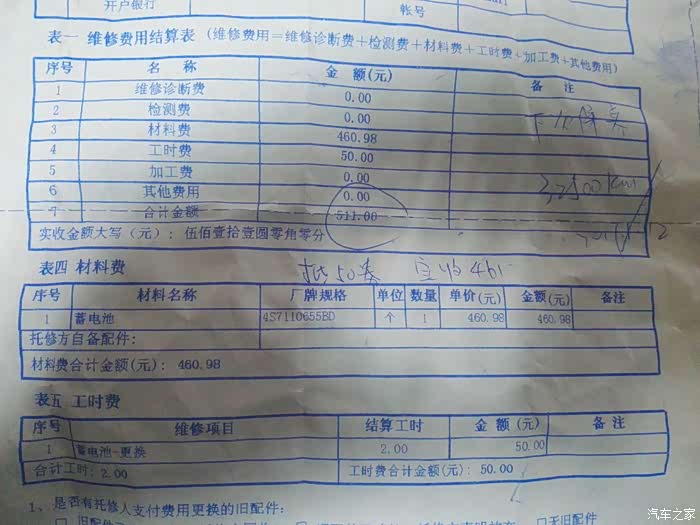 开户银行 帐号
表一 维修费用结算表 (维修费用=维修诊断费+检测费+材料费+工时费+加工费+其他费用)
序号 名 称 金 额(元) 备 注
1 维修诊断费 0.00
2 检测费 0.00
3 材料费 460.98
4 工时费 50.00
5 加工费 0.00
6 其他费用 0.00
7 合计金额 511.00
实收金额大写(元): 伍佰壹拾壹圆零角零分
下次保养
32500km
表四 材料费
抵50券 实收461
序号 材料名称 厂牌规格 单位 数量 单价(元) 金额(元) 备注
1 蓄电池 4S7110655BD 个 1 460.98 460.98
托修方自备配件:
材料费合计金额(元): 460.98
表五 工时费
序号 维修项目 结算工时 金 额(元) 备 注
1 蓄电池-更换 2.00 50.00
合计工时: 2.00 工时费合计金额(元): 50.00
1、是否有托修人支付费用更换的旧配件:
汽车之家